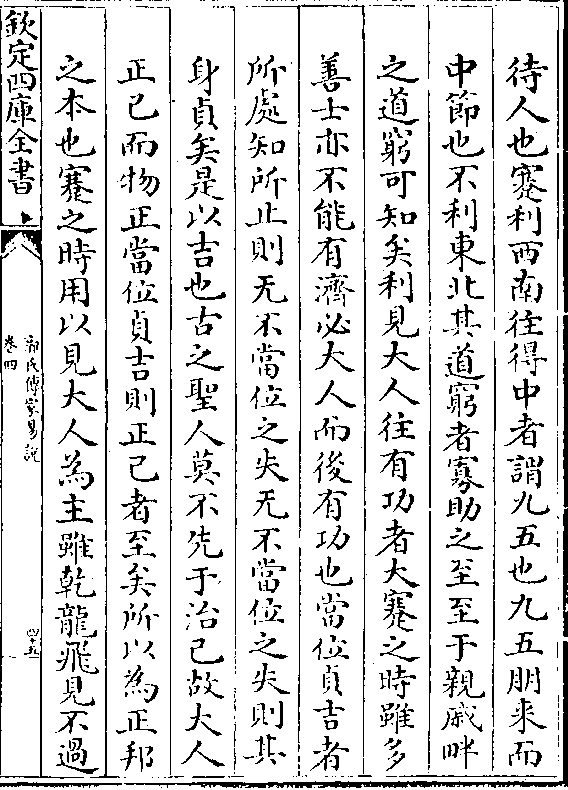 待人也蹇利西南往得中者謂九五也九五朋来而
中節也不利東北其道窮者寡助之至至于親戚畔
之道窮可知矣利見大人往有功者大蹇之時雖多
善士亦不能有濟必大人而後有功也當位貞吉者
所處知所止則无不當位之失无不當位之失則其
身貞矣是以吉也古之聖人莫不先于治己故大人
正己而物正當位貞吉則正己者至矣所以為正邦
之本也蹇之時用以見大人為主雖乾龍飛見不過
欽定四庫全書
郭氏傳家易說
卷四
四十五